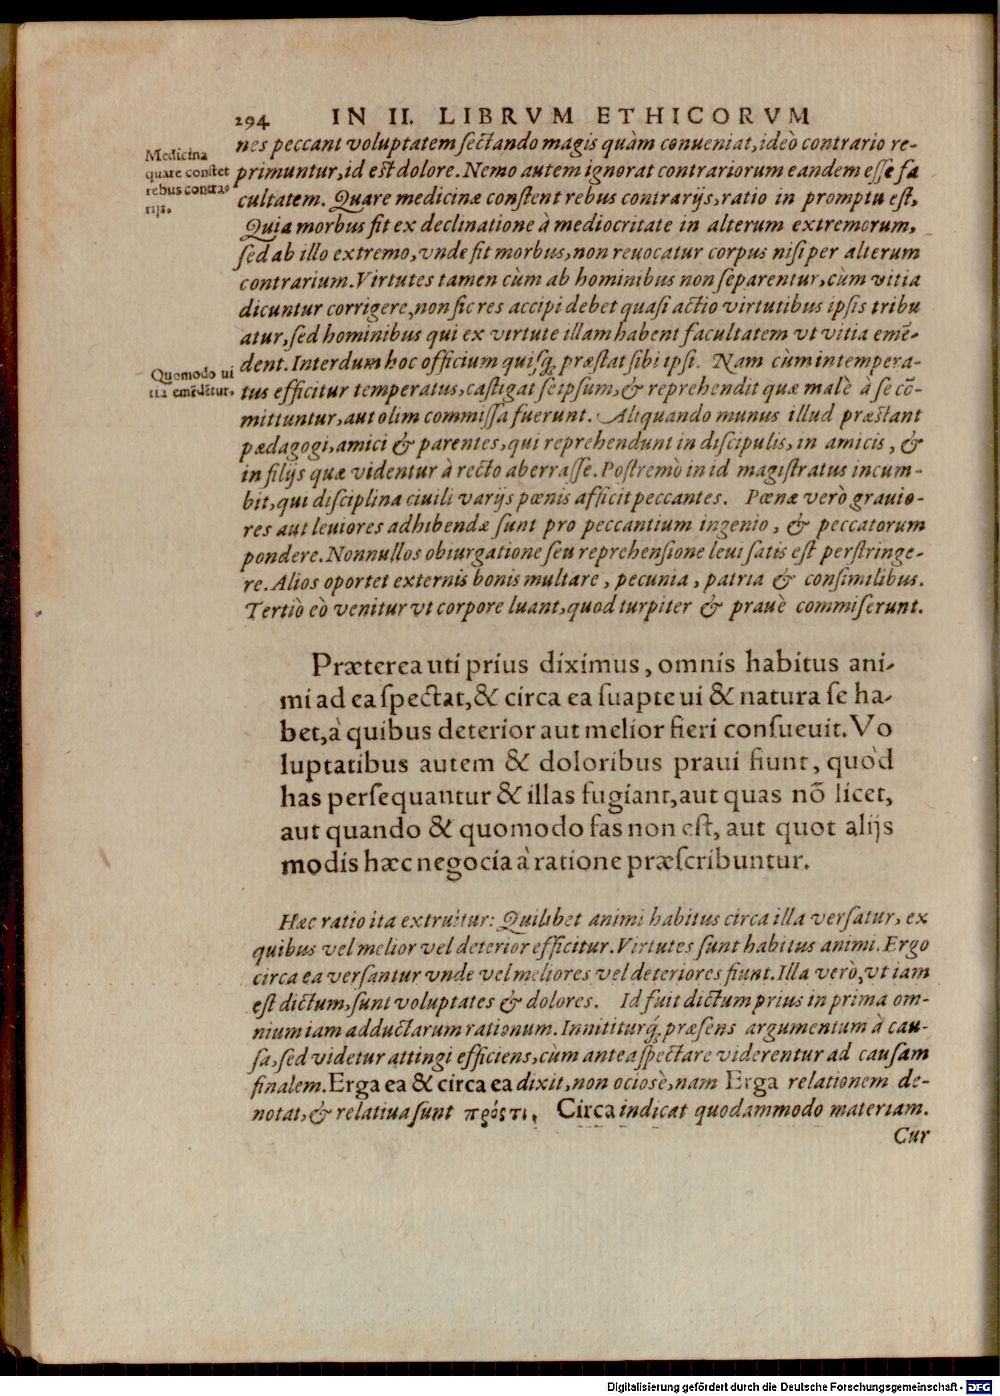 294 IN II. LIBRVM ETHICORVM
nes peccant voluptatem sectando magis quàm conueniat, ideò contrario re-
Medicina
quare constet
rebus contra-
rijs.
primuntur, id est dolore. Nemo autem ignorat contrariorum eandem esse fa
cultatem. Quare medicinæ constent rebus contrarijs, ratio in promptu est,
Quia morbus fit ex declinatione à mediocritate in alterum extremorum,
sed ab illo extremo, vnde fit morbus, non reuocatur corpus nisi per alterum
contrarium. Virtutes tamen cùm ab hominibus non separentur, cùm vitia
dicuntur corrigere, non sic res accipi debet quasi actio virtutibus ipsis tribu
atur, sed hominibus qui ex virtute illam habent facultatem vt vitia emē-
Quomodo ui
tia emēdētur.
dent. Interdum hoc officium quisq; præstat sibi ipsi. Nam cùm intempera-
tus efficitur temperatus, castigat seipsum, & reprehendit quæ malè à se cō-
mittuntur, aut olim commissa fuerunt. Aliquando munus illud præstant
pædagogi, amici & parentes, qui reprehendunt in discipulis, in amicis, &
in filijs quæ videntur à recto aberrasse. Postremò in id magistratus incum-
bit, qui disciplina ciuili varijs pœnis afficit peccantes. Pœnæ verò grauio-
res aut leuiores adhibendæ sunt pro peccantium ingenio, & peccatorum
pondere. Nonnullos obiurgatione seu reprehensione leui satis est perstringe-
re. Alios oportet externis bonis multare, pecunia, patria & consimilibus.
Tertiò eò venitur vt corpore luant, quod turpiter & prauè commiserunt.
Præterea uti prius diximus, omnis habitus ani-
mi ad ea spectat, & circa ea suapte ui & natura se ha-
bet, à quibus deterior aut melior fieri consueuit. Vo
luptatibus autem & doloribus praui fiunt, quòd
has persequantur & illas fugiant, aut quas nō licet,
aut quando & quomodo fas non est, aut quot alijs
modis hæc negocia à ratione præscribuntur.
Hæc ratio ita extruitur: Quilibet animi habitus circa illa versatur, ex
quibus vel melior vel deterior efficitur. Virtutes sunt habitus animi. Ergo
circa ea versantur vnde vel meliores vel deteriores fiunt. Illa verò, vt iam
est dictum, sunt voluptates & dolores. Id fuit dictum prius in prima om-
nium iam adductarum rationum. Innititurq; præsens argumentum à cau-
sa, sed videtur attingi efficiens, cùm antea spectare viderentur ad causam
finalem. Erga ea & circa ea dixit, non ociosè, nam Erga relationem de-
notat, & relatiua sunt πρός τι, Circa indicat quodammodo materiam.
Cur
Digitalisierung gefördert durch die Deutsche Forschungsgemeinschaft - DFG